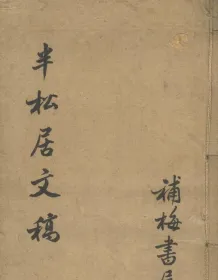 半松居文稿
補梅書屋